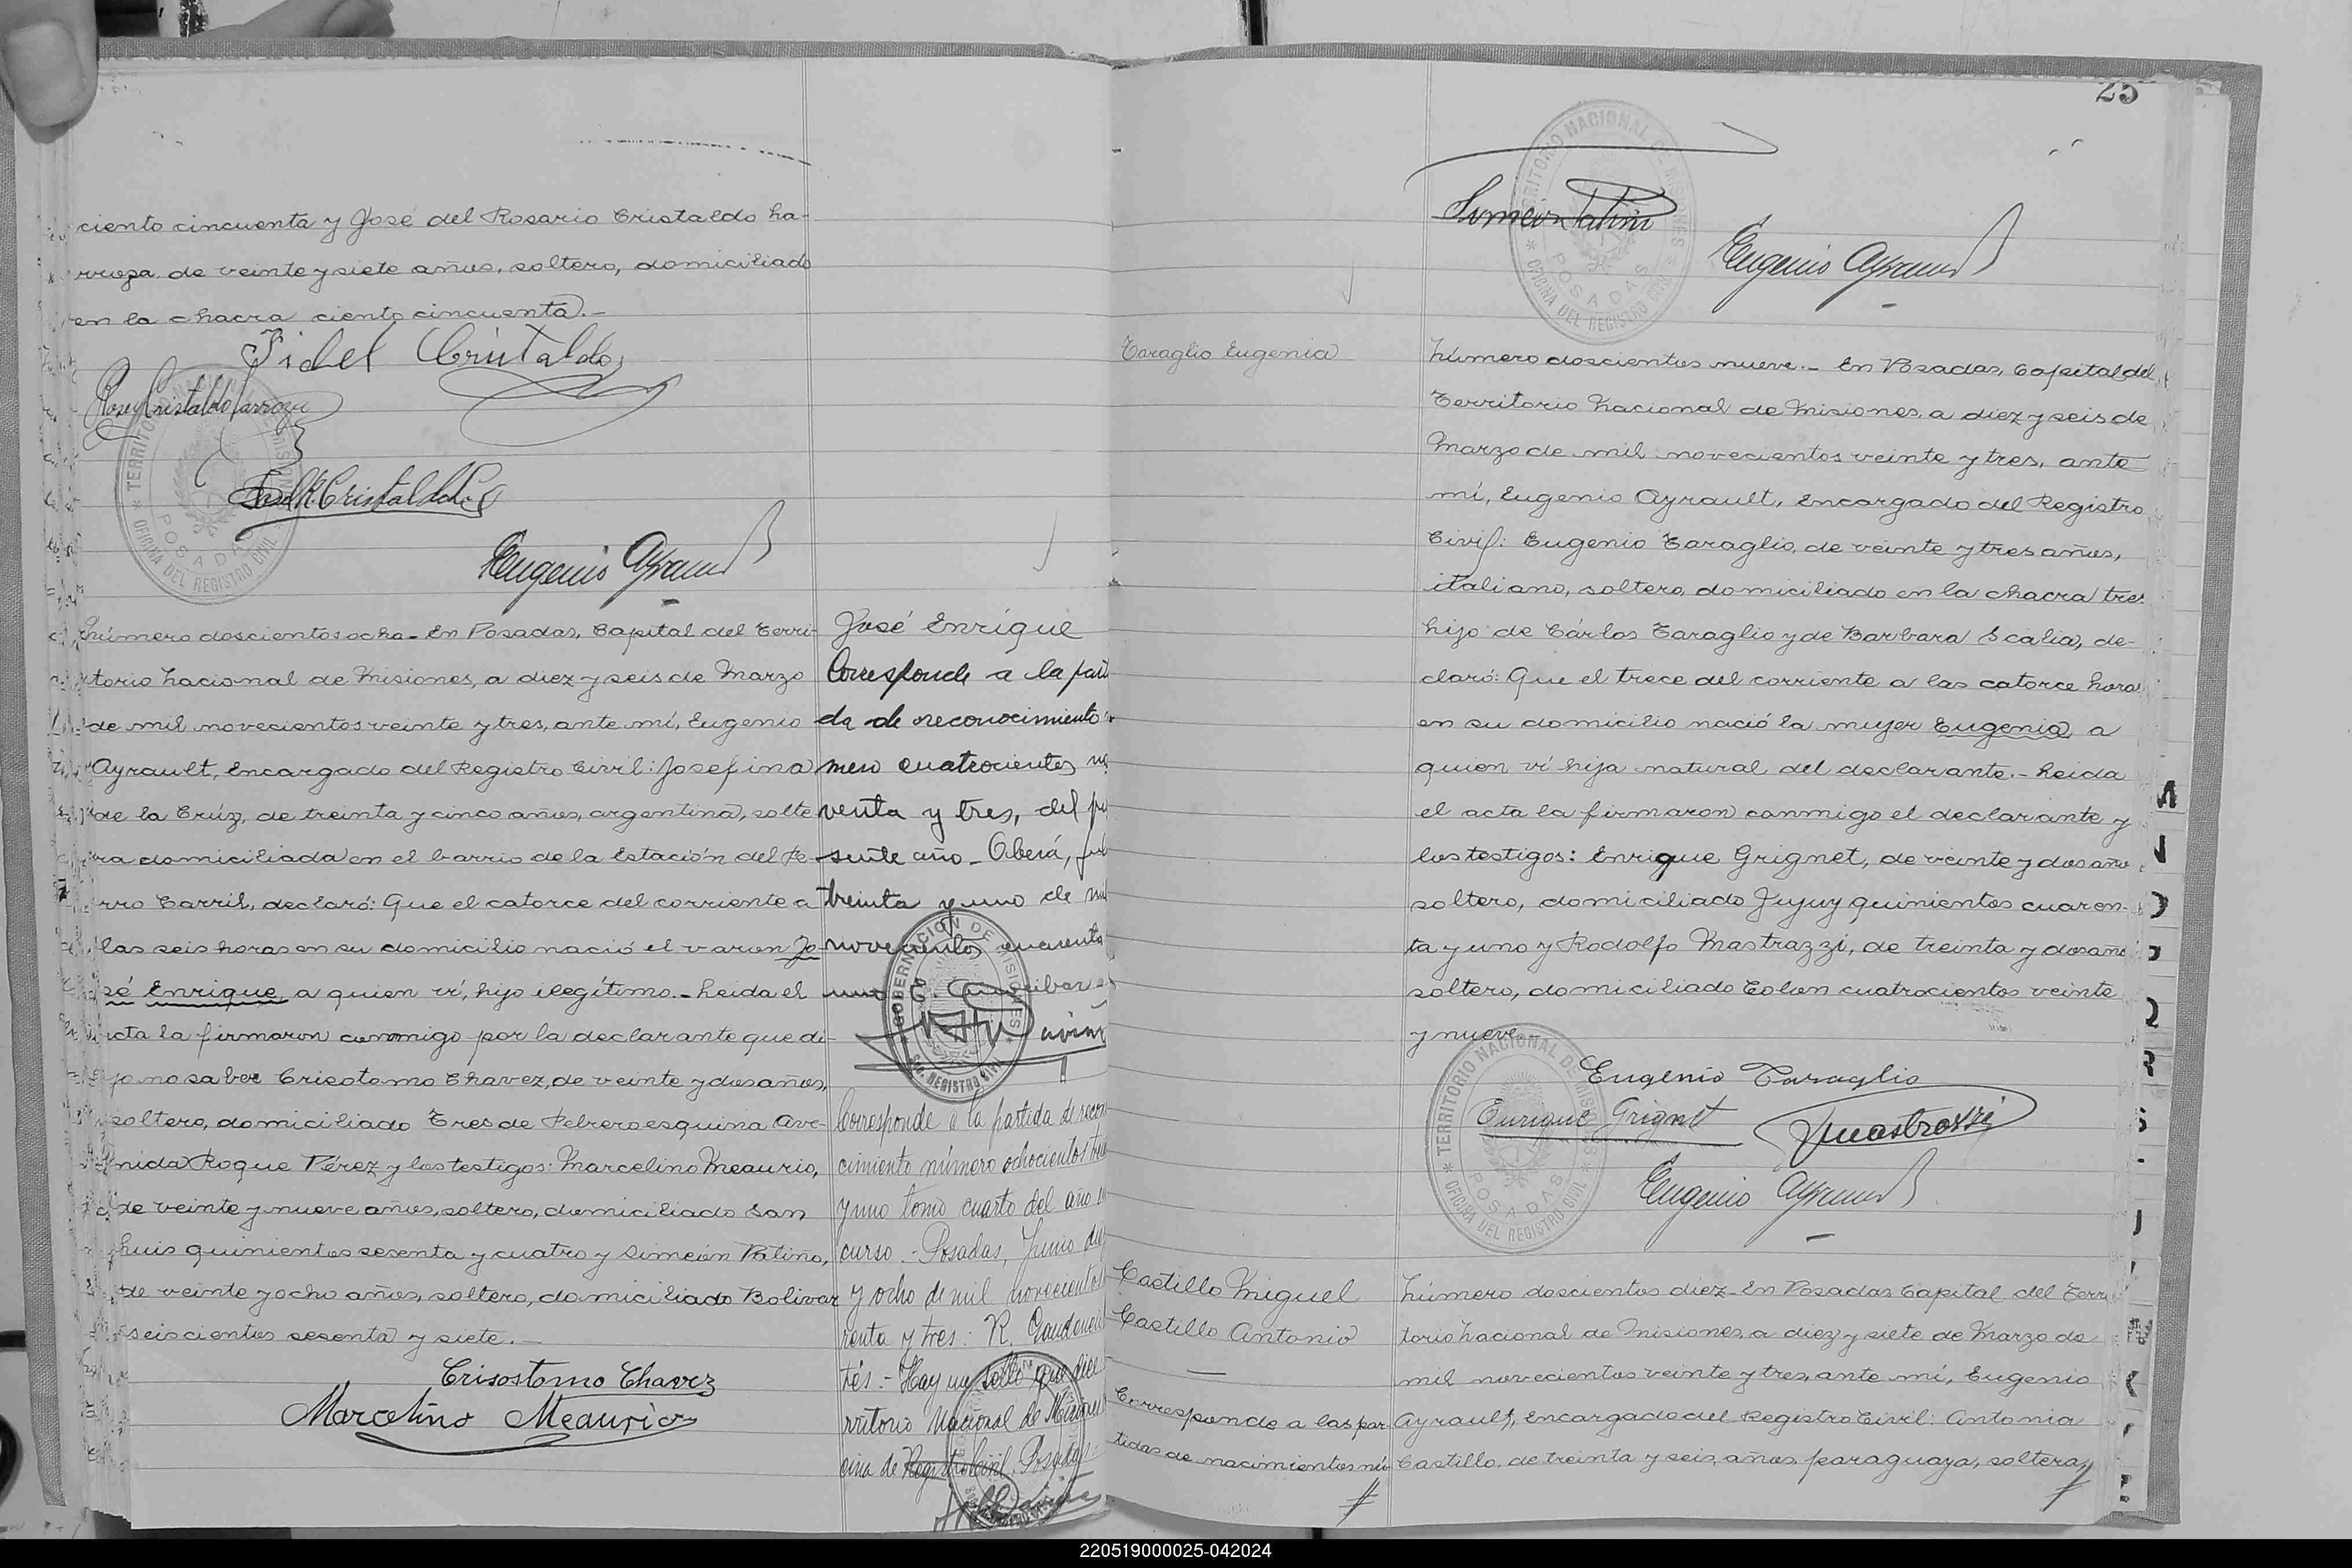 ciento cincuenta y José del Rosario Cristaldo ha-
rroza de veinte y siete años, soltero, domiciliado
en la chacra ciento cincuenta.-
Fidel Cristaldo
José Cristaldo Larroza
José R. Cristaldo L.
Eugenio Ayrault
Número doscientos ocho.- En Posadas, Capital del Terri-
torio Nacional de Misiones, a diez y seis de Marzo
de mil novecientos veinte y tres, ante mí, Eugenio
Ayrault, Encargado del Registro Civil: Josefina
de la Crúz, de treinta y cinco años, argentina, solte
ra domiciliada en el barrio de la Estación del Fe-
rro Carril, declaró: Que el catorce del corriente a
las seis horas en su domicilio nació el varon Jo-
sé Enrique, a quien ví, hijo ilegítimo.- Leida el
acta la firmaron conmigo por la declarante que di-
jo no saber Crisotomo Chavez, de veinte y dos años,
soltero, domiciliado Tres de Febrero esquina Ave-
nida Roque Pérez y los testigos: Marcelino Meaurio,
de veinte y nueve años, soltero, domiciliado San
Luis quinientos sesenta y cuatro y Simeón Patiño,
de veinte y ocho años, soltero, domiciliado Bolivar
seiscientos sesenta y siete.-
Crisostomo Chavez
Marcelino Meaurio
José Enrique
Corresponde a la parti
da de reconocimiento
mero cuatrocientos no
venta y tres, del pre
sente año.- Oberá,
treinta y uno de mil
novecientos cuarenta
uno
GOBERNACION DE MISIONES
REGISTRO CIVIL
Corresponde a la partida de recono
cimiento número ochocientos
y uno tomo cuarto del año en
curso.- Posadas, Junio
y ocho de mil novecientos
renta y tres: R. Gaudencio
tés.- Hay un sello que dice
rritorio Nacional de Misiones
cina de Registro Civil. Posadas
25
TERRITORIO NACIONAL DE MISIONES
POSADAS
OFICINA DEL REGISTRO CIVIL
Simeon Patiño
Eugenio Ayrault
Taraglio Eugenia
Número doscientos nueve.- En Posadas, Capital del
Territorio Nacional de Misiones, a diez y seis de
Marzo de mil novecientos veinte y tres, ante
mí, Eugenio Ayrault, Encargado del Registro
Civil: Eugenio Taraglio, de veinte y tres años,
italiano, soltero, domiciliado en la chacra tres
hijo de Cárlos Taraglio y de Barbara Scalia, de-
claró: Que el trece del corriente a las catorce horas
en su domicilio nació la mujer Eugenia, a
quien ví hija natural del declarante.- Leida
el acta la firmaron conmigo el declarante y
los testigos: Enrique Grignet, de veinte y dos años
soltero, domiciliado Jujuy quinientos cuaren-
ta y uno y Rodolfo Mastrazzi, de treinta y dos años
soltero, domiciliado Colon cuatrocientos veinte
y nueve.
Eugenio Taraglio
Enrique Grignet
Eugenio Ayrault
TERRITORIO NACIONAL DE MISIONES
POSADAS
OFICINA DEL REGISTRO CIVIL
Castillo Miguel
Castillo Antonio
Corresponde a las par
tidas de nacimientos nú-
Número doscientos diez.- En Posadas Capital del Terri
torio Nacional de Misiones, a diez y siete de Marzo de
mil novecientos veinte y tres, ante mí, Eugenio
Ayrault, Encargado del Registro Civil: Antonia
Castillo, de treinta y seis años paraguaya, soltera,
220519000025-042024